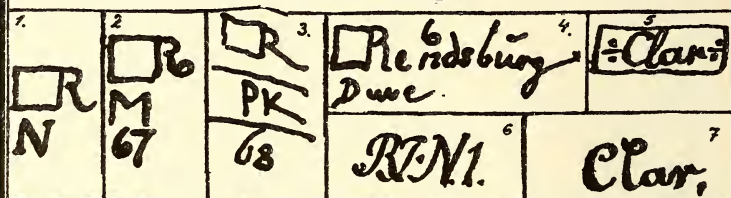 1.
R
N
2
R
M
67
3.
R
PK
68
4.
Rendsburg
Duve.
5
÷Clar÷
6
R.F.N1.
7
Clar,